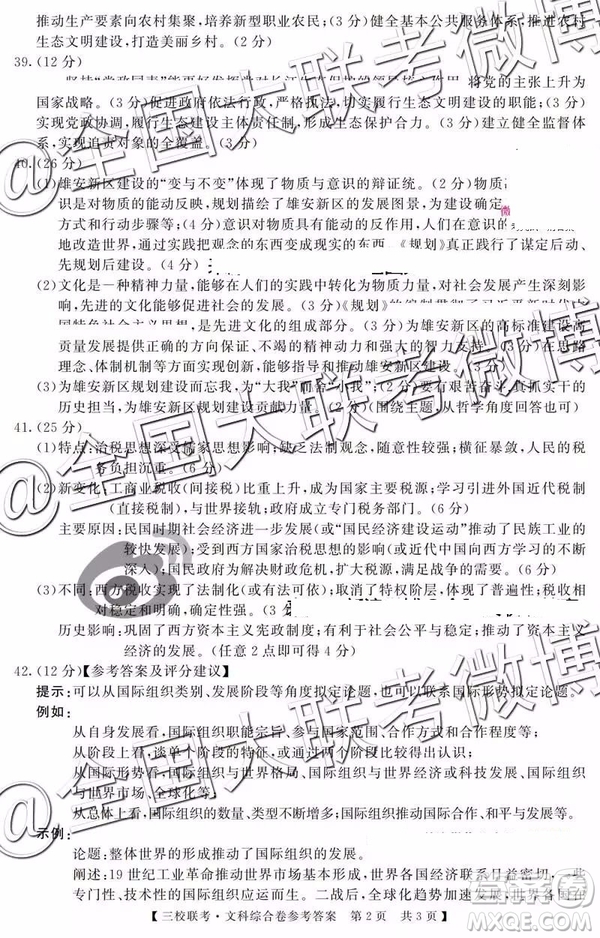 推动生产要素向农村集聚,培养新型职业农民;(3分)健全基本公共服务体系,推进农村
生态文明建设,打造美丽乡村。(2分)
39.(12分)
将党的主张上升为
国家战略。(3分)促进政府依法行政,严格执法,切实履行生态文明建设的职能;(3分)
实现党政协调,履行生态文明建设主体责任制,形成生态保护合力。(3分)健全监督体
系,实现追责对象的全覆盖。(3分)
40.(26分)
(1)雄安新区建设的“变与不变”体现了物质与意识的辩证统。(2分)物质
识是对物质的能动反映,规划描绘了雄安新区的发展图景,为建设确定
方式和行动步骤等;(4分)意识对物质具有能动的反作用,人们在意识的
地改造世界,通过实践把观念的东西变成现实的东西《规划》真正践行了谋定后动、
先规划后建设。(4分)
(2)文化是一种精神力量,能够在人们的实践中转化为物质力量,对社会发展产生深刻影
响,先进的文化能够促进社会的发展。(3分)《规划》
国特色社会主义思想,是先进文化的组成部分。(3分)为雄安新区的高标准建设高
质量发展提供正确的方向保证、不竭的精神动力和强大的智力支持。(3分)在思路
理念、体制机制等方面实现创新,能够指导和推动雄安新区建设。(3分)
(3)为雄安新区规划建设而忘我,为“大我”而舍“小我”;(2分)要有艰苦奋斗、真抓实干的
历史担当,为雄安新区规划建设贡献力量。(2分)(围绕主题,从哲学角度回答也可)
41.(25分)
(1)特点:治税思想深受儒家思想影响;缺乏法制观念,随意性较强;横征暴敛,人民的税
务负担沉重。(6分)
(2)新变化:工商业税(间接税)比重上升,成为国家主要税源;学习引进外国近代税制
(直接税制),与世界税制接轨;政府成立专门税务部门。(6分)
主要原因:民国时期社会经济进一步发展(或“国民经济建设运动”推动了民族工业的
较快发展);受到西方国家治税思想的影响(或近代中国向西方学习的不断
深入);民国政府为解决财政危机,扩大税源,满足战争的需要。(6分)
(3)不同:西方税收实现了法制化(或有法可依);取消了特权阶级,体现了普遍性;税收相
对稳定和明确。(3分
历史影响:巩固了西方资本主义宪政制度;有利于社会公平与稳定;推动了资本主义
经济的发展。(任意2点即可得4分)
42.(12分)【参考答案及评分建议】
提示:可以从国际组织类别、发展阶段等角度拟定论题,也可以联系国际形势拟定论题。
例如:
从自身发展看,国际组织职能宗旨、参与国家范围、合作方式和合作程度等;
从阶段上看,谈单个阶段的特征,或通过两个阶段比较得出认识;
从国际形势看,国际组织与世界格局、国际组织与世界经济或科技发展、国际组织
与世界市场、全球化等。
从总体上看,国际组织的数量、类型不断增多;国际组织推动国际合作、和平与发展等。
示例:
论题:整体世界的形成推动了国际组织的发展。
阐述:19世纪工业革命推动世界市场基本形成,世界各国经济联系日益密切,推动
了一大批专门性、政府间国际组织诞生。二战后,全球
三校联考·文科综合卷参考答案 第2页 共3页
@全国大联考微博
@全国大联考微博
@全国大联考微博